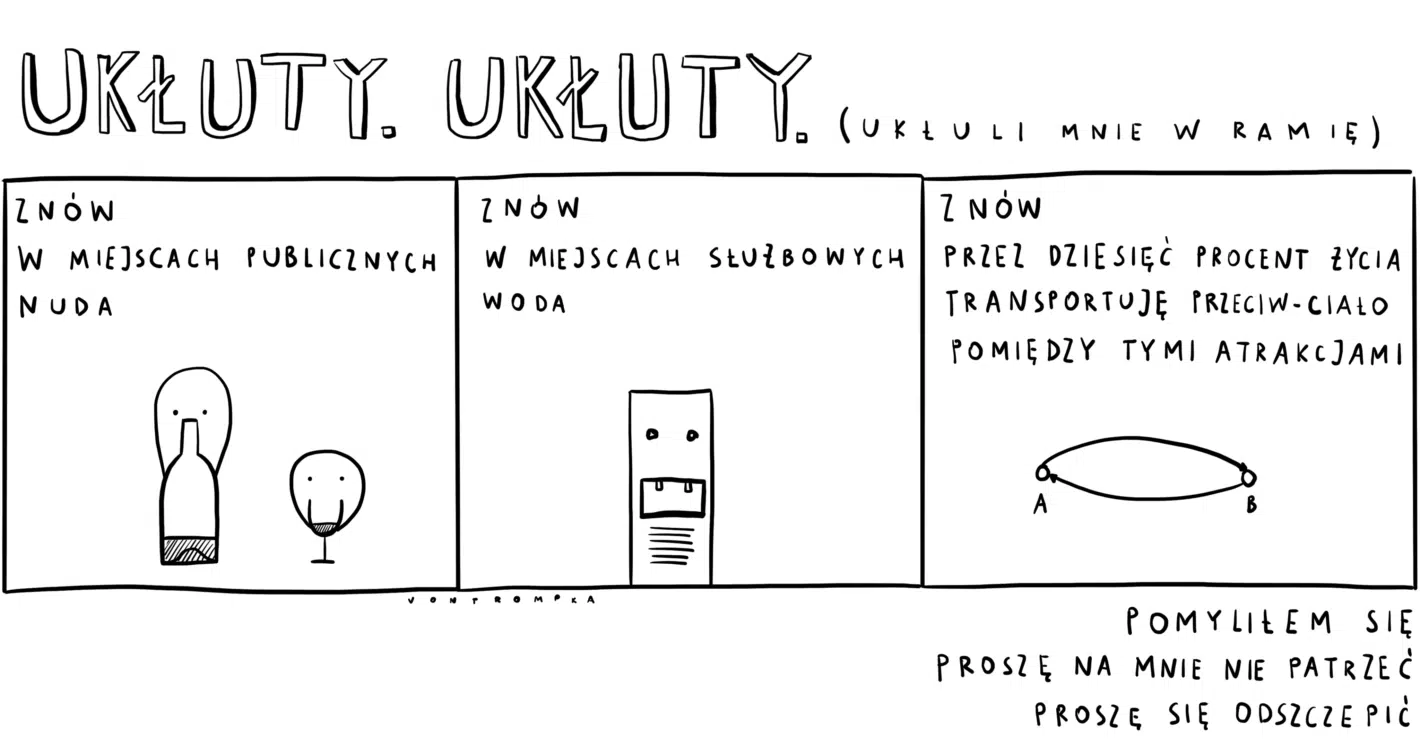 UKŁUTY. UKŁUTY. (UKŁULI MNIE W RAMIĘ)
ZNÓW
W MIEJSCACH PUBLICZNYCH
NUDA
ZNÓW
W MIEJSCACH SŁUŻBOWYCH
WODA
ZNÓW
PRZEZ DZIESIĘĆ PROCENT ŻYCIA
TRANSPORTUJĘ PRZECIW-CIAŁO
POMIĘDZY TYMI ATRAKCJAMI
A
B
VONTROMPKA
POMYLIŁEM SIĘ
PROSZĘ NA MNIE NIE PATRZEĆ
PROSZĘ SIĘ ODSZCZEPIĆ